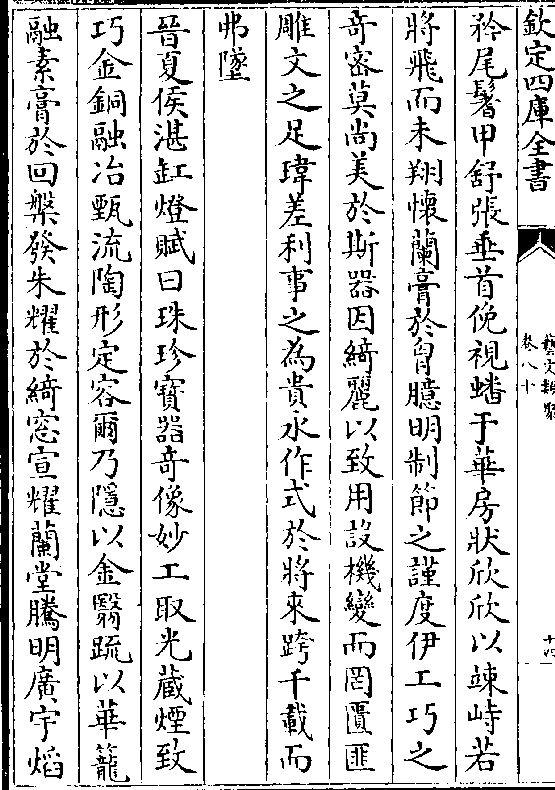 欽定四庫全書
藝文類聚
卷八十
十四
矜尾鬐甲舒張垂首俛視蟠于華房狀欣欣以竦峙若
將飛而未翔懷蘭膏於胷臆明制節之謹度伊工巧之
奇密莫尚美於斯器因綺麗以致用設機變而罔匱匪
雕文之足瑋差利事之為貴永作式於將來跨千載而
弗墜
晉夏侯湛缸燈賦曰珠珍寶器奇像妙工取光藏煙致
巧金銅融冶甄流陶形定容爾乃隱以金翳疏以華籠
融素膏於回槃發朱耀於綺窓宣耀蘭堂騰明廣宇熖